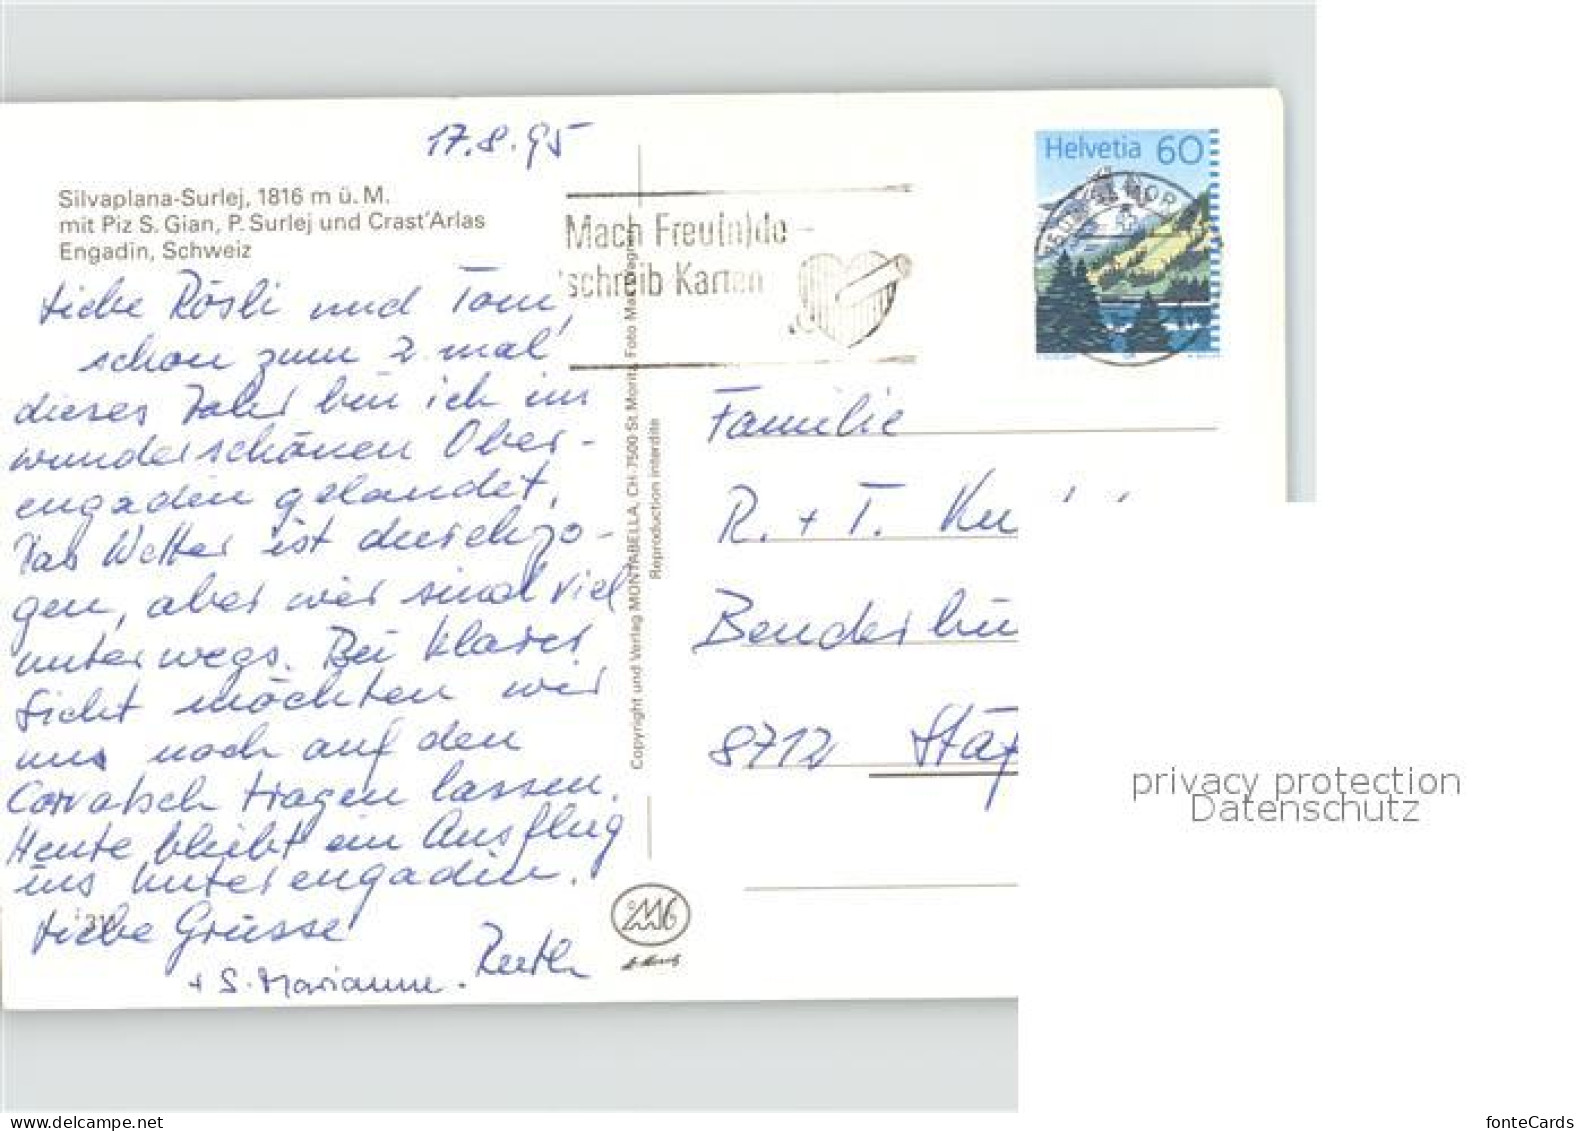 17.8.95
Silvaplana-Surlej, 1816 m ü. M.
mit Piz S. Gian, P. Surlej und Crast'Arlas
Engadin, Schweiz
Liebe Rösli und Tom,
schon zum 2. mal
dieses Jahr bin ich im
wunderschönen Ober-
engadin gelandet,
Das Wetter ist durchzo-
gen, aber wir sind viel
unterwegs. Bei klarer
Sicht möchten wir
uns noch auf den
Corvatsch tragen lassen.
Heute bleibt ein Ausflug
ins Unterengadin.
Liebe Grüsse
Ruth
+ S. Marianne.
Copyright und Verlag MONTABELLA, CH-7500 St. Moritz, Foto Max Wagner
Reproduction interdite
Mach Freu(n)de -
schreib Karten
Helvetia 60
Familie
R. + T.
8712
privacy protection
Datenschutz
fonteCards